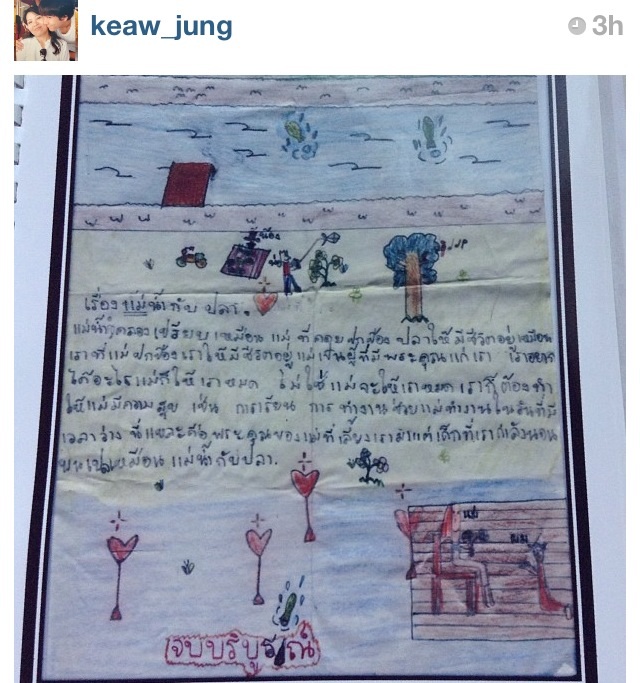 keaw_jung
3h
น้อง
เรื่อง แม่น้ำกับ ปลา.
แม่น้ำลำคลอง เปรียบ เหมือน แม่ ที่คอย ปกป้อง ปลาให้ มีชีวิตอยู่ เหมือน
เราที่ แม่ ปกป้อง เราให้ มี ชีวิตอยู่ แม่ เป็น ผู้ ที่มี พระคุณ แก่ เรา เราอยาก
ได้อะไร แม่ก็ ให้ เรา หมด ไม่ ใช่ แม่ จะให้ เรา หมด เราก็ ต้อง ทำ
ให้ แม่ มีความ สุข เช่น การเรียน การ ทำงาน ช่วย แม่ ทำงาน ในวันที่มี
เวลาว่าง นี่แหละคือ พระคุณ ของแม่ที่ เลี้ยงเรามาแต่ เด็กที่เรากำลังนอน
บนเปลเหมือน แม่น้ำกับปลา.
แม่
ผม
จบบริบูรณ์